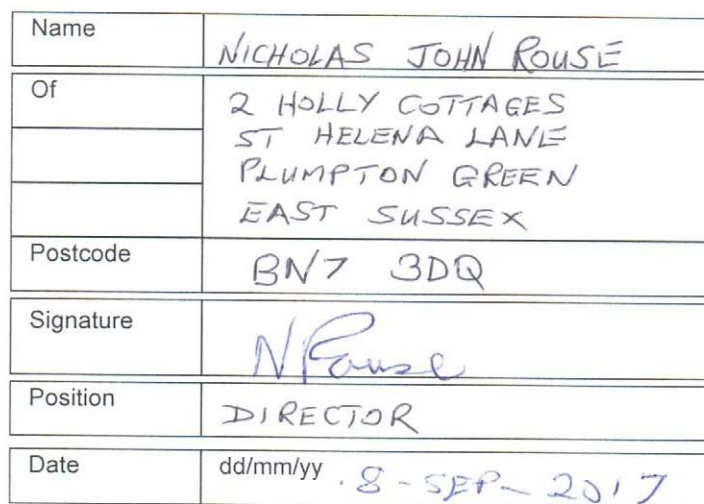 Name NICHOLAS JOHN ROUSE
Of 2 HOLLY COTTAGES
ST HELENA LANE
PLUMPTON GREEN
EAST SUSSEX
Postcode BN7 3DQ
Signature N Rouse
Position DIRECTOR
Date dd/mm/yy 8-SEP-2017